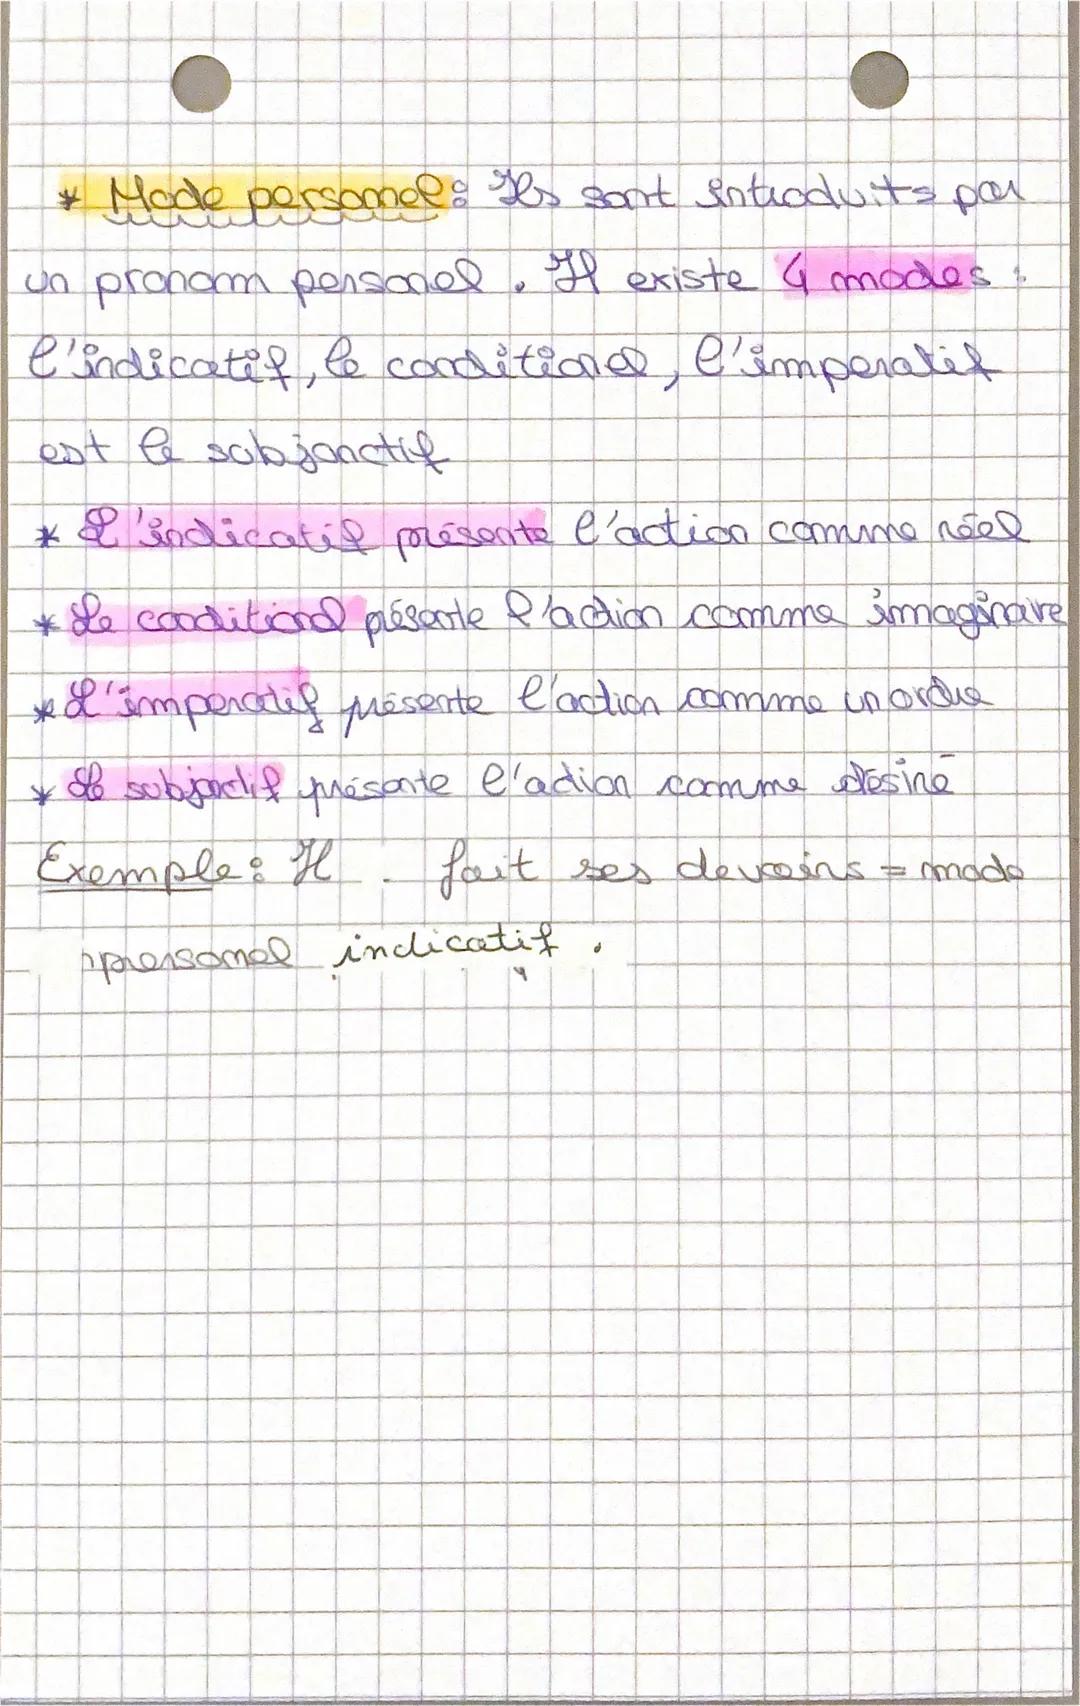 * Mode personel : Ils sont introduits par
un pronom personel. Il existe 4 modes :
l'indicatif, le conditionel, l'imperatif
est le subjonctif
* L'indicatif présente l'action comme réel
* Le conditionel présente l'action comme imaginaire
* L'imperatif présente l'action comme un ordre
* Le subjonctif présente l'action comme désiré
Exemple : Il fait ses devoirs = mode
personel indicatif.